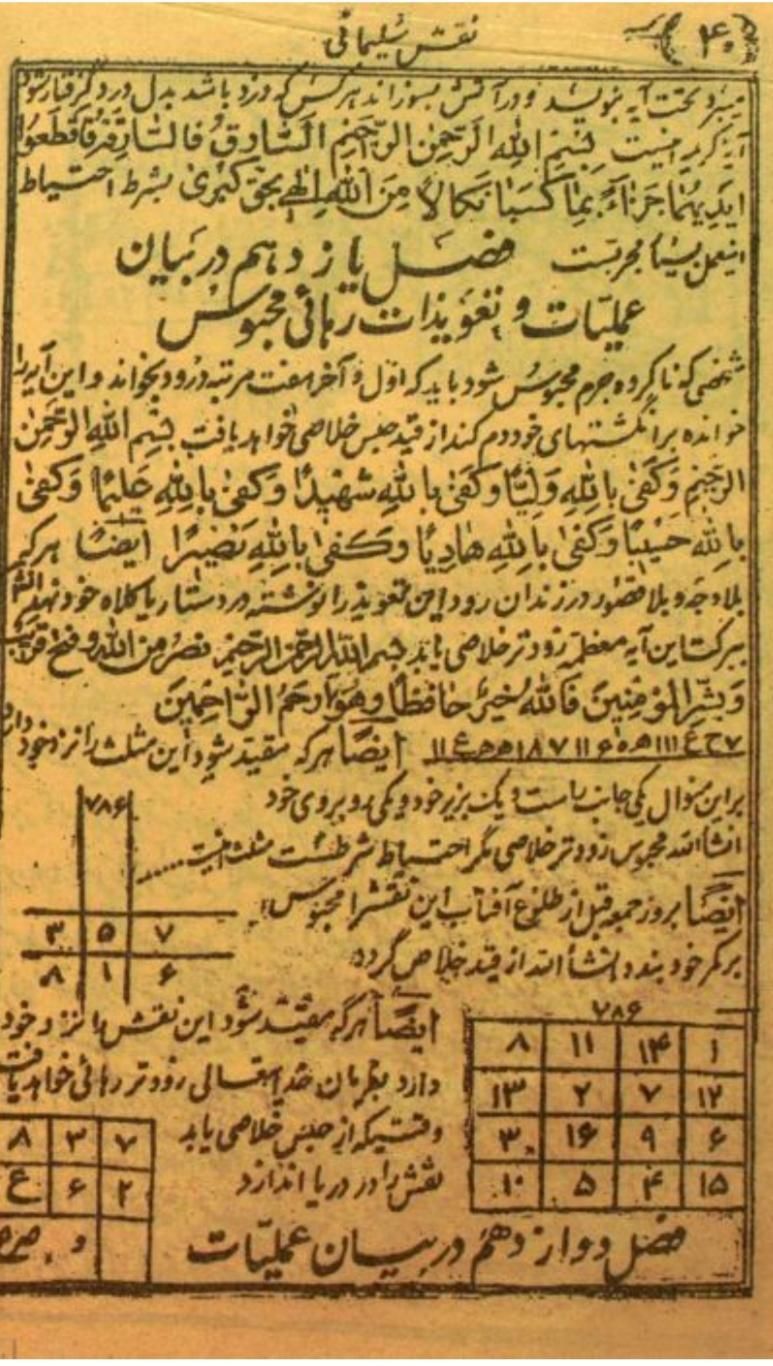 نقش سلیمانی
۴۰
میبرد تحت آیه نویسد و در آتش بسوزاند هر کس که دزد باشد بدل درد گرفتار شود
آیه کریمه اینست بِسْمِ اللهِ الرَّحْمٰنِ الرَّحِیْمِ اَلسَّارِقُ فَالسَّارِقَةُ فَاقْطَعُوْا
اَیْدِیَهُمَا جَزَآءً بِمَا کَسَبَا نَکَالًا مِنَ اللهِ الٰهی بحق کبریٰ بشرط احتیاط
اینعمل بسیا مجربست فصل یازدهم در بیان
عملیّات و تعویذات رہائی محبوس
شخصی که ناکرده جرم محبوس شود باید که اوّل و آخر هفت مرتبه درود بخواند و این آیه را
خوانده بر انگشتهای خود دم کند از قید حبس خلاصی خواهد یافت بِسْمِ اللهِ الرَّحْمٰنِ
الرَّحِیْمِ وَکَفٰی بِاللهِ وَلِیًّا وَکَفٰی بِاللهِ شَهِیْدًا وَکَفٰی بِاللهِ عَلِیْمًا وَکَفٰی
بِاللهِ حَسِیْبًا وَکَفٰی بِاللهِ هَادِیًا وَکَفٰی بِاللهِ نَصِیْرًا ایضًا هر که
بلا وجه و بلا قصور در زندان رود این تعویذ را نوشته در دستار یا کلاه خود نهد انشا
ببرکت این آیه معظمه زودتر خلاصی یابد بسم الله الرحمن الرحیم نصر من الله و فتح قریب
وَبَشِّرِ الْمُؤْمِنِیْنَ فَاللهُ خَیْرٌ حَافِظًا وَهُوَ اَرْحَمُ الرَّاحِمِیْنَ
ایضًا هر که مقید شود این مثلث را نزد خود دارد
بر این منوال یکی جانب راست و یک بزیر خود و یکی روبروی خود
انشاالله محبوس زودتر خلاصی مگر احتیاط شرطست مثلث اینست.....
۷۸۶
ایضًا بروز جمعه قبل از طلوع آفتاب این نقش را محبوس
۳ ۵ ۷
بر کمر خود بندد انشاالله از قید خلاص گردد
۸ ۱ ۶
ایضًا هر که مقید شود این نقش را نزد خود
دارد بفرمان خدایتعالی زودتر رهائی خواهد یافت
وقتیکه از حبس خلاصی یابد
نقش را در دریا اندازد
۷۸۶
۸ ۱۱ ۱۴ ۱
۱۳ ۲ ۷ ۱۲
۳ ۱۶ ۹ ۶
۱۰ ۵ ۴ ۱۵
۸ ۳ ۷
ع ۶ ۲
و
فصل دوازدهم در بیان عملیّات